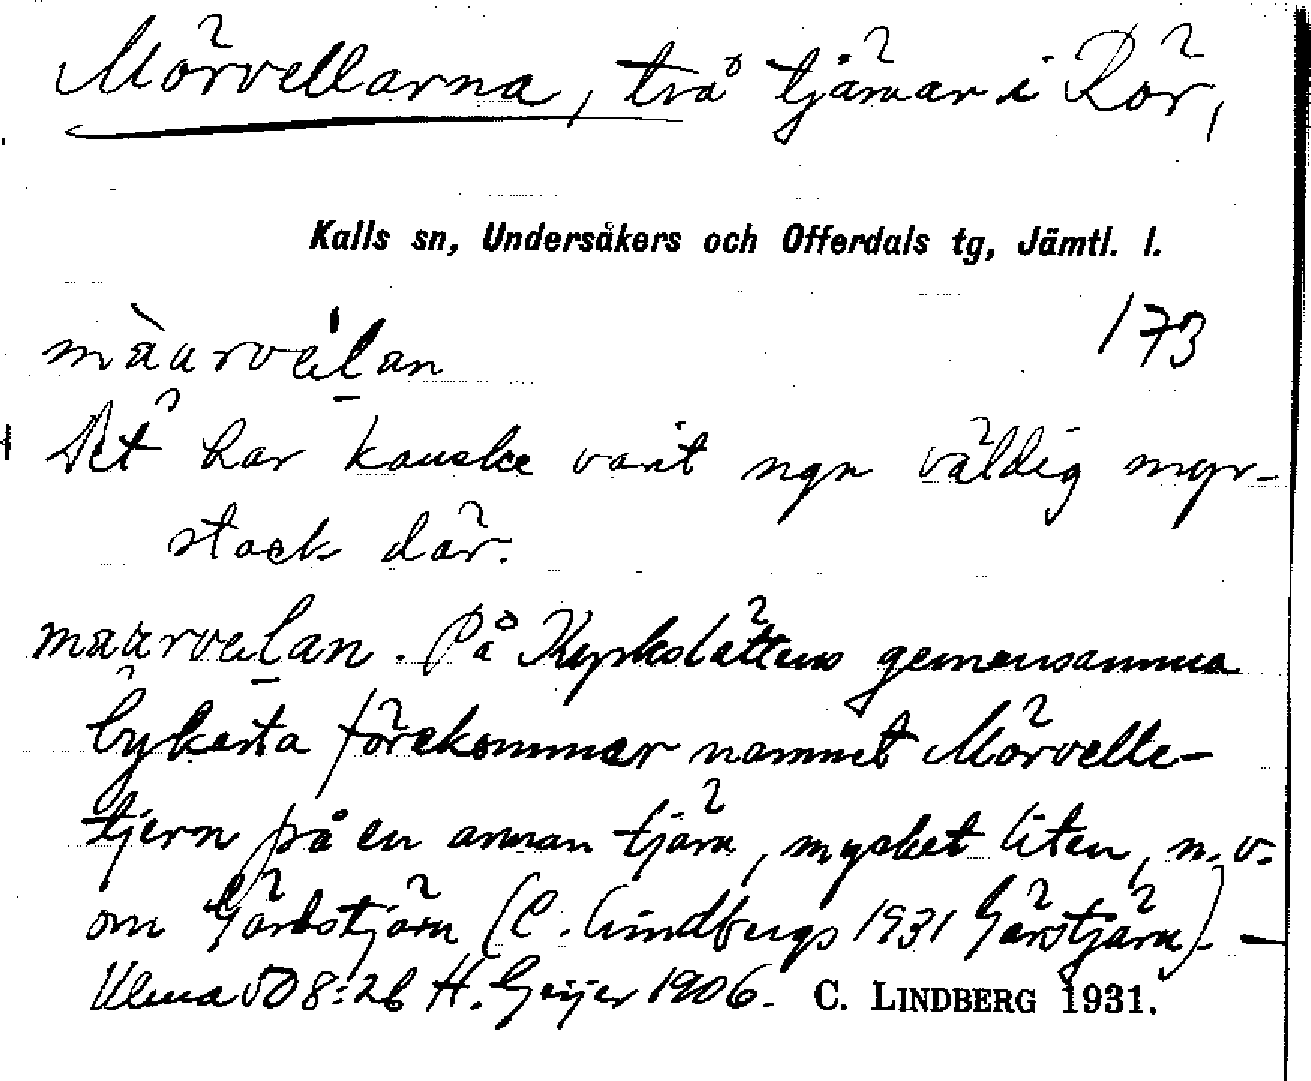 Mörvellarna, två tjärnar i Rör,
Kalls sn, Undersåkers och Offerdals tg, Jämtl. l.
173
Det har kanske varit ngn väldig myr-
stack där.
På Kyrkslättens gemensamma
bykarta förekommer namnet Mörvelle-
tjern på en annan tjärn, mycket liten, n.v.
om Gärdstjärn (C. Lindbergs 1931 Gärstjärn). —
Ulma 508:26 H. Geijer 1906. C. LINDBERG 1931.